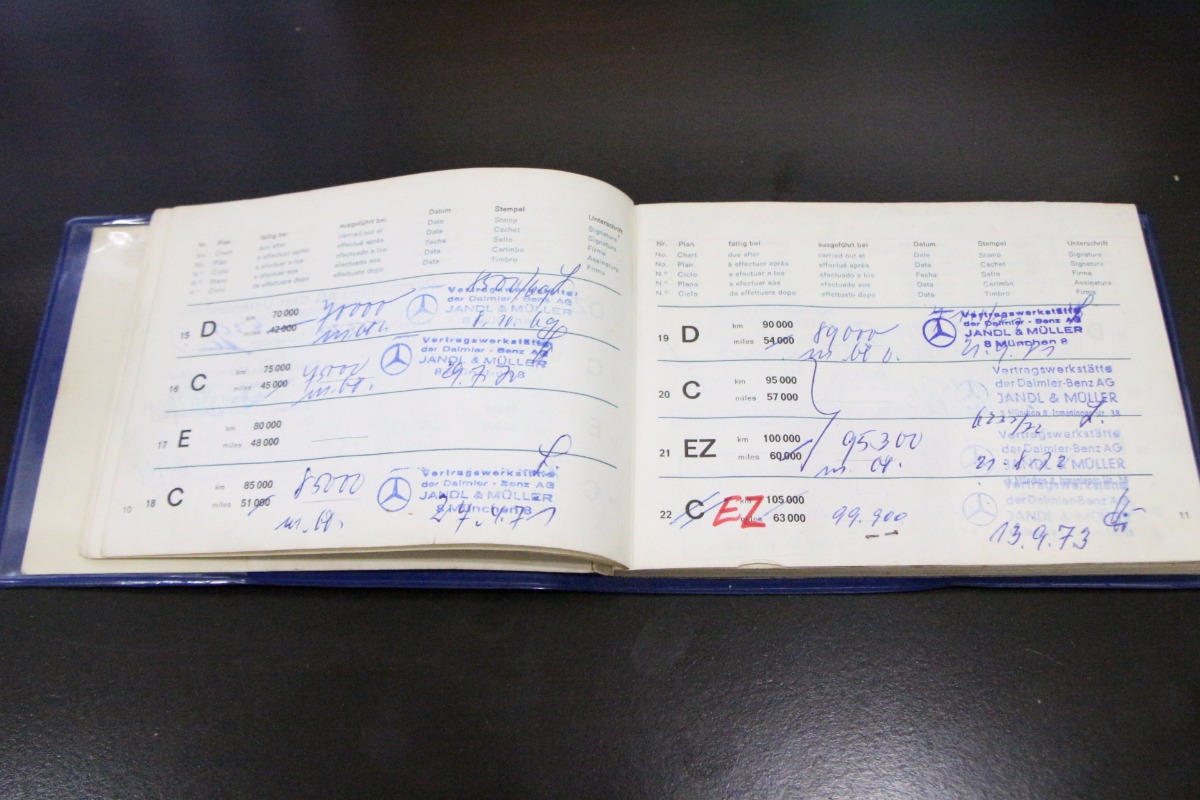 Nr. Plan fällig bei ausgeführt bei Datum Stempel Unterschrift
No. Chart due after carried out at Date Stamp Signature
No. Plan à effectuer après effectué après Date Cachet Signature
N.° Ciclo a efectuar a los efectuado a los Fecha Sello Firma
N.° Ciclo a efectuar aos efectuado aos Data Carimbo Assinatura
N.° Ciclo da effettuare dopo effettuato dopo Data Timbro Firma
15 D km 70 000
miles 42 000
Vertragswerkstätte
der Daimler-Benz AG
JANDL & MÜLLER
16 C km 75 000
miles 45 000
Vertragswerkstätte
der Daimler-Benz AG
JANDL & MÜLLER
8 München 8
17 E km 80 000
miles 48 000
10 18 C km 85 000
miles 51 000
Vertragswerkstätte
der Daimler-Benz AG
JANDL & MÜLLER
8 München 8
Nr. Plan fällig bei ausgeführt bei Datum Stempel Unterschrift
No. Chart due after carried out at Date Stamp Signature
No. Plan à effectuer après effectué après Date Cachet Signature
N.° Ciclo a efectuar a los efectuado a los Fecha Sello Firma
N.° Plano a efectuar aos efectuado aos Data Carimbo Assinatura
N.° Ciclo da effettuare dopo effettuato dopo Data Timbro Firma
19 D km 90 000 89000
miles 54 000
Vertragswerkstätte
der Daimler-Benz AG
JANDL & MÜLLER
8 München 8
20 C km 95 000
miles 57 000
Vertragswerkstätte
der Daimler-Benz AG
JANDL & MÜLLER
8 München 8, Ismaninger Str. 38
21 EZ km 100 000 95300
miles 60 000
Vertragswerkstätte
der Daimler-Benz AG
JANDL & MÜLLER
22 C EZ km 105 000 99.900
miles 63 000
Vertragswerkstätte
der Daimler-Benz AG
JANDL & MÜLLER
13.9.73
11